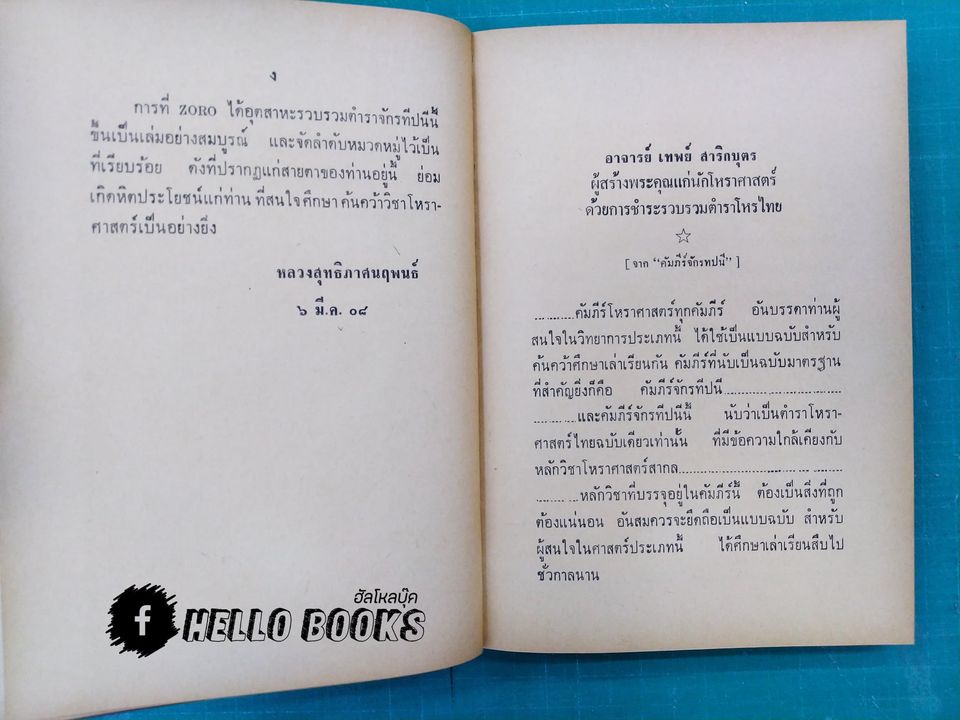 ง
การที่ ZORO ได้อุตสาหะรวบรวมตำราจักรทีปนีนี้
ขึ้นเป็นเล่มอย่างสมบูรณ์ และจัดลำดับหมวดหมู่ไว้เป็น
ที่เรียบร้อย ดังที่ปรากฏแก่สายตาของท่านอยู่นี้ ย่อม
เกิดหิตประโยชน์แก่ท่าน ที่สนใจศึกษา ค้นคว้าวิชาโหรา-
ศาสตร์เป็นอย่างยิ่ง
หลวงสุทธิภาศนฤพนธ์
๖ มี.ค. ๐๘
อาจารย์ เทพย์ สาริกบุตร
ผู้สร้างพระคุณแก่นักโหราศาสตร์
ด้วยการชำระรวบรวมตำราโหรไทย
☆
[ จาก “คัมภีร์จักรทปนี” ]
............คัมภีร์โหราศาสตร์ทุกคัมภีร์ อันบรรดาท่านผู้
สนใจในวิทยาการประเภทนี้ ได้ใช้เป็นแบบฉบับสำหรับ
ค้นคว้าศึกษาเล่าเรียนกัน คัมภีร์ที่นับเป็นฉบับมาตรฐาน
ที่สำคัญยิ่งก็คือ คัมภีร์จักรทีปนี..............................
............และคัมภีร์จักรทีปนีนี้ นับว่าเป็นตำราโหรา-
ศาสตร์ไทยฉบับเดียวเท่านั้น ที่มีข้อความใกล้เคียงกับ
หลักวิชาโหราศาสตร์สากล...................................
............หลักวิชาที่บรรจุอยู่ในคัมภีร์นี้ ต้องเป็นสิ่งที่ถูก
ต้องแน่นอน อันสมควรจะยึดถือเป็นแบบฉบับ สำหรับ
ผู้สนใจในศาสตร์ประเภทนี้ ได้ศึกษาเล่าเรียนสืบไป
ชั่วกาลนาน
ฮัลโหลบุ๊ค
f HELLO BOOKS